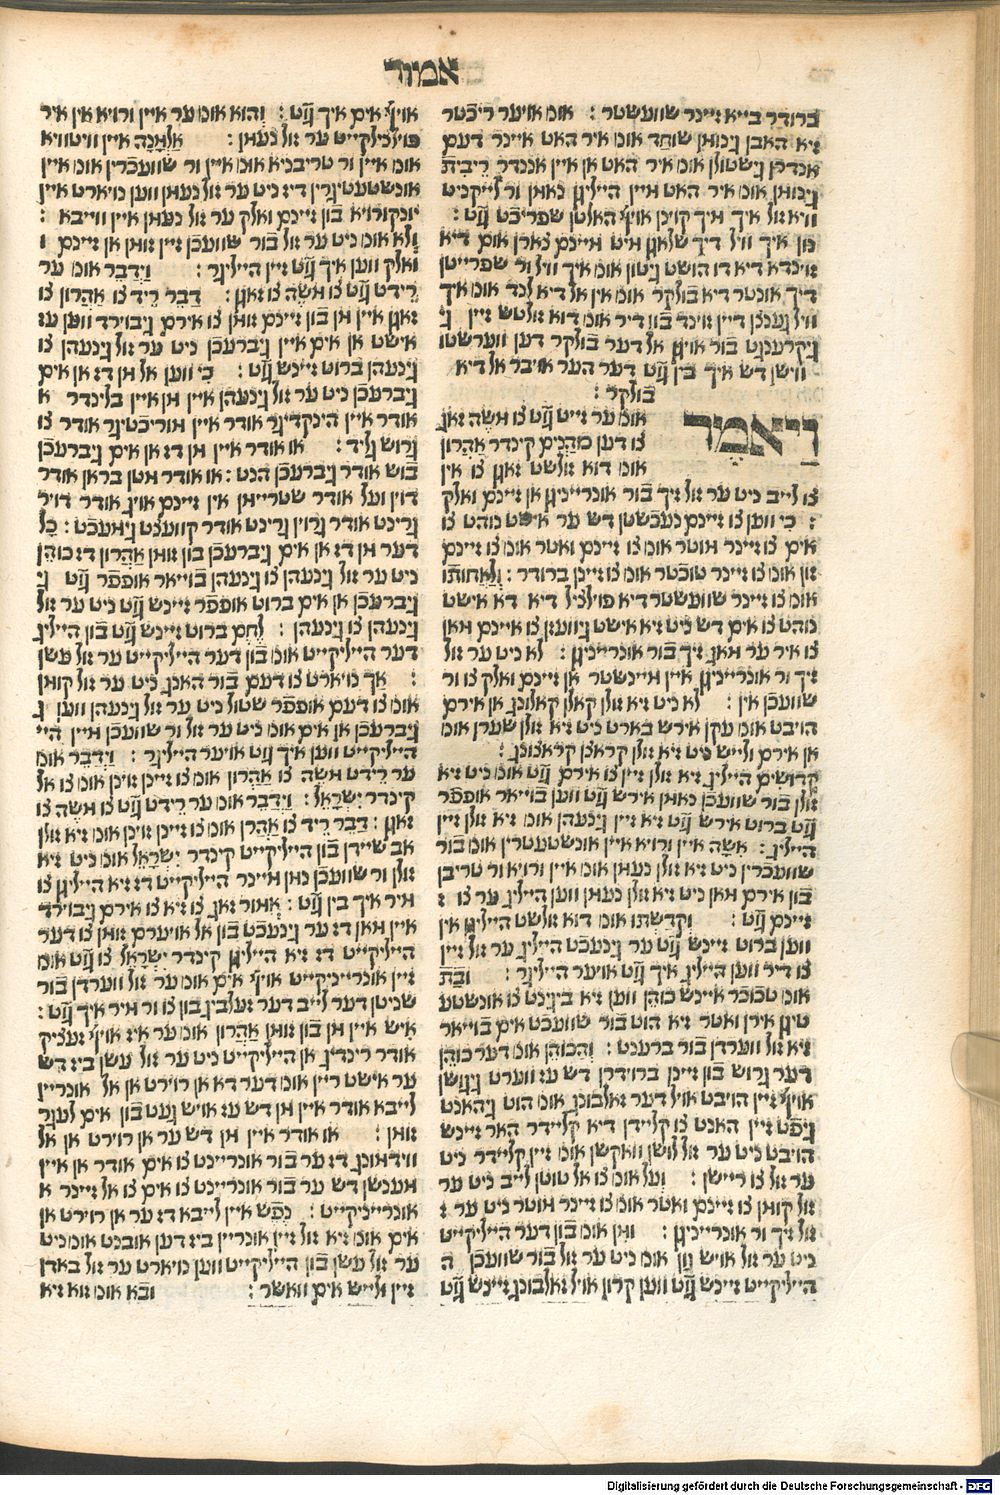 אמור
ברודר בייא זיינר שוועשטר : אומ אויער ריכטר
זיא האבן גינומן שוחד אומ איר האט איינר דעם
אנדרן גישטולן אומ איר האט אן איין אנדר ריבית
גינומן אומ איר האט מיין הייליגן נאמן ור לייקניט
וויא זול איך מיך קוינן אויף האלטן שפריכט גֿט :
נון איך וויל דיך שלאגן מיט מיינם צארן אום דיא
זוינדא דיא דו הושט גיטון אומ איך וויל ור שפרייטן
דיך אונטר דיא בולקר אומ אין אל דיא לנד אומ איך
וויל
גיקרענקט בור אויגן אל דער בולקר דען ווערשטו
ווישן דש איך בין גֿט דער הער איבר אל דיא
בולקר :
ויאמר
אומ ער זייט גֿט צו משה זאג
צו דען כהנים קינדר אהרן
אומ דוא זולשט זאגן צו אין
צו לייב ניט ער זול זיך בור אונרייניגן אן זיינם ואלק
: כי ווען צו זיינם נעכשטן דש ער אישט נוהט צו
אים צו זיינר מוטר אומ צו זיינם ואטר אומ צו זיינם
זון אומ צו זיינר טוכטר אומ צו זיינן ברודר : ולאחותו
אומ צו זיינר שוועשטר דיא פוילציל דיא דא אישט
נוהט צו אים דש ניט זיא אישט גיוועזן צו איינם מאן
צו איר ער מאג זיך בור אונרייניגן : לא ניט ער זול
זיך ור אונרייניגן איין מיינשטר אן זיינם ואלק צו ור
שוועכן אין : לא ניט זיא זולן קאלן קאלונג אן אירם
הויבט אומ עקן אירש בארט ניט זיא זולן שערן אומ
אן אירם ולייש ניט זיא זולן קראצן קראצונג :
קדושים הייליג זיא זולן זיין צו אירם גֿט אומ ניט זיא
זולן בור שוועכן נאמן אירש גֿט ווען בוייאר אופפר
גֿט ברוט אירש גֿט זיא זיין גינעהן אומ זיא זולן זיין
הייליג : אשה איין ורויא איין אונשטעטרין אומ בור
שוועכרין ניט זיא זולן נעמן אומ איין ורויא ור טריבן
בון אירם מאן ניט זיא זולן נעמן ווען הייליג ער צו
זיינם גֿט : וקדשתו אומ דוא זולשט הייליגן אין
ווען ברוט זיינש גֿט ער גינעכט הייליג ער זול זיין
צו דיר ווען הייליג איך גֿט אויער הייליגר : ובת
אומ טוכטר איינש כוהן ווען זיא ביגינט צו אונשטע
טיגן אירן ואטר זיא הוט בור שוועכט אים בוייאר
זיא זול ווערדן בור ברענט : והכוהן אומ דער כוהן
דער גרוש בון זיינן ברוידרן דש עז ווערט גיגושן
אויף זיין הויבט אויל דער זאלבונג אומ הוט גיהאנט
גיפֿט זיין האנט צו קליידן דיא קליידר האר זיינש
הויבט ניט ער זול לושן וואקשן אומ זיין קליידר ניט
ער זול צו ריישן : ועל אומ צו אל טוטן לייב ניט ער
זול קומן צו זיינם ואטר אומ צו זיינר מוטר ניט ער
זול זיך ור אונרייניגן : ומן אומ בון דער הייליקייט
ניט ער זול אויש גון אומ ניט ער זול בור שוועכן
הייליקייט זיינש גֿט ווען קרון אויל זאלבונג זיינש גֿט
אויף אים איך גֿט : והוא אומ ער איין ורויא אין איר
פוילצילקייט ער זול נעמן : אלמנה איין וויטוויא
אומ איין ור טריבניא אומ איין ור שוועכרין אומ איין
אונשטעטיגרין דיז ניט ער זול נעמן ווען נויארט איין
יונקורויא בון זיינם ואלק ער זול נעמן איין ווייבא :
ולא אומ ניט ער זול בור שוועכן זיין זומן אן זיינם
ואלק ווען איך גֿט זיין הייליגר : וידבר אומ ער
רידט גֿט צו משה צו זאגן : דבר ריד צו אהרון צו
זאגן איין מן בון זיינם זומן צו אירם גיבוירד ווען עז
אישט אן אים איין גיברעכן ניט ער זול גינעהן צו
גינעהן ברוט זיינש גֿט : כי ווען אל מן דז אן אים
גיברעכן ניט ער זול גינעהן איין מן איין בלינדר
אודר איין הינקדיגר אודר איין מוריבטיגר אודר צו
גרוש גליד : או אודר איין מן דז אן אים גיברעכן
בוש אודר גיברעכן הנט : או אודר מטן בראן אודר
דוין ועל אודר שטריימן אין זיינם אויג אודר דויר
גרינט אודר גרוין גרינט אודר קווענט גימעכט : כל
דער מן דז אן אים גיברעכן בון זומן אהרון דז כוהן
ניט ער זול גינעהן צו גינעהן בוייאר אופפר גֿט
גיברעכן אן אים ברוט אופפר זיינש גֿט ניט ער זול
גינעהן צו גינעהן : לחם ברוט זיינש גֿט בון הייליג
דער הייליקייט אומ בון דער הייליקייט ער זול עשן
: אך נויארט צו דעם בור האנג ניט ער זול קומן
אומ צו דעם אופפר שטול ניט ער זול גינעהן ווען
גיברעכן אן אים אומ ניט ער זול ור שוועכן מיין היי
הייליקייט ווען איך גֿט אויער הייליגר : וידבר אומ
ער רידט משה צו אהרון אומ צו זיינן זוינן אומ צו אל
קינדר ישראל : וידבר אומ ער רידט גֿט צו משה צו
זאגן : דבר ריד צו אהרן אומ צו זיינן זוינן אומ זיא זולן
אב שיידן בון הייליקייט קינדר ישראל אומ ניט זיא
זולן ור שוועכן נאמן מיינר הייליקייט דז זיא הייליגן צו
מיר איך בין גֿט : אמור זאג צו זיא צו אירם גיבוירד
איין מאן דז ער גינעכט בון אל אויערם זומן צו דער
הייליקייט דז זיא הייליגן קינדר ישראל צו גֿט אומ
זיין אונרייניקייט אויף אים אומ ער זול ווערדן בור
שניטן דער לייב דער זעלביג בון צו ור מיר איך גֿט :
איש איין מן בון זומן אהרון אומ ער איז אויף זעציק
אודר רינדיג אן הייליקייט ניט ער זול עשן ביז דש
ער אישט ריין אומ דער דא אן רוירט אן אל אונריין
לייבא אודר איין מן דש עז אויש געט בון אים לעגר
זומן : או אודר איין מן דש ער אן רוירט אן אל
ווידמונג דז ער בור אונריינט צו אים אודר אן איין
מענשן דש ער בור אונריינט צו אים צו אל זיינר
אונרייניקייט : נפש איין לייבא דז ער אן רוירט אן
אים אומ זיא זול זיין אונריין ביז דען אובנט אומ ניט
ער זול עשן בון הייליקייט ווען נויארט ער זול באדן
זיין ולייש אים וואשר : ובא אומ זוא זיא
Digitalisierung gefördert durch die Deutsche Forschungsgemeinschaft - DFG